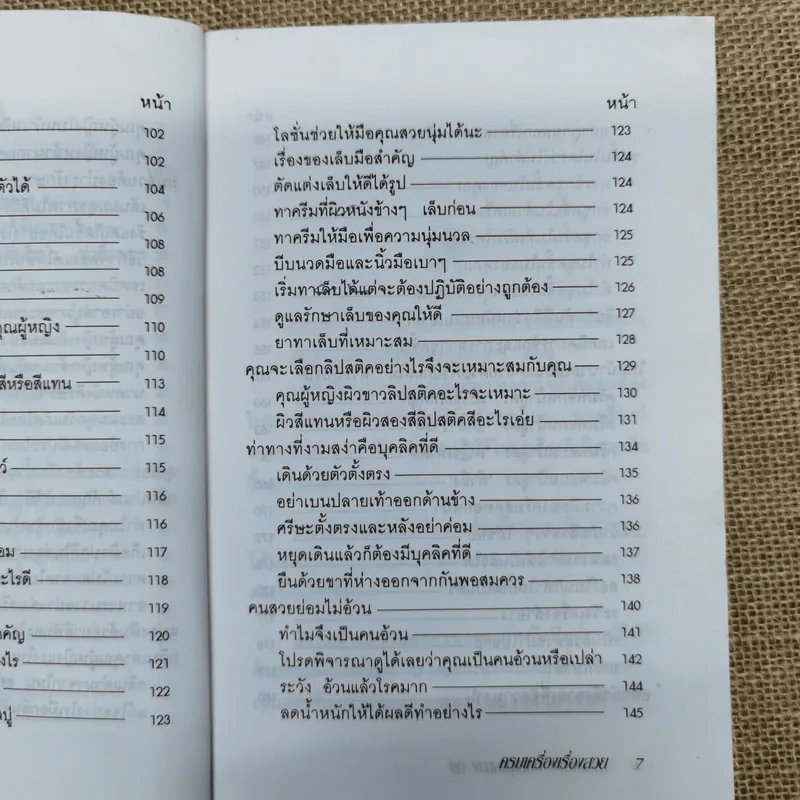 หน้า
102
102
ตัวได้ 104
106
108
108
109
คุณผู้หญิง 110
110
สีหรือสีแทน 113
114
115
115
116
116
117
118
119
120
121
122
123
หน้า
โลชั่นช่วยให้มือคุณสวยนุ่มได้นะ 123
เรื่องของเล็บมือสำคัญ 124
ตัดแต่งเล็บให้ดีได้รูป 124
ทาครีมที่ผิวหนังข้างๆ เล็บก่อน 124
ทาครีมให้มือเพื่อความนุ่มนวล 125
บีบนวดมือและนิ้วมือเบาๆ 125
เริ่มทาเล็บได้แต่จะต้องปฏิบัติอย่างถูกต้อง 126
ดูแลรักษาเล็บของคุณให้ดี 127
ยาทาเล็บที่เหมาะสม 128
คุณจะเลือกลิปสติคอย่างไรจึงจะเหมาะสมกับคุณ 129
คุณผู้หญิงผิวขาวลิปสติคอะไรจะเหมาะ 130
ผิวสีแทนหรือผิวสองสีลิปสติคสีอะไรเอ่ย 131
ท่าทางที่งามสง่าคือบุคลิคที่ดี 134
เดินด้วยตัวตั้งตรง 135
อย่าเบนปลายเท้าออกด้านข้าง 136
ศรีษะตั้งตรงและหลังอย่าค่อม 136
หยุดเดินแล้วก็ต้องมีบุคลิคที่ดี 137
ยืนด้วยขาที่ห่างออกจากกันพอสมควร 138
คนสวยย่อมไม่อ้วน 140
ทำไมจึงเป็นคนอ้วน 141
โปรดพิจารณาดูได้เลยว่าคุณเป็นคนอ้วนหรือเปล่า 142
ระวัง อ้วนแล้วโรคมาก 144
ลดน้ำหนักให้ได้ผลดีทำอย่างไร 145
ครบเครื่องเรื่องสวย 7